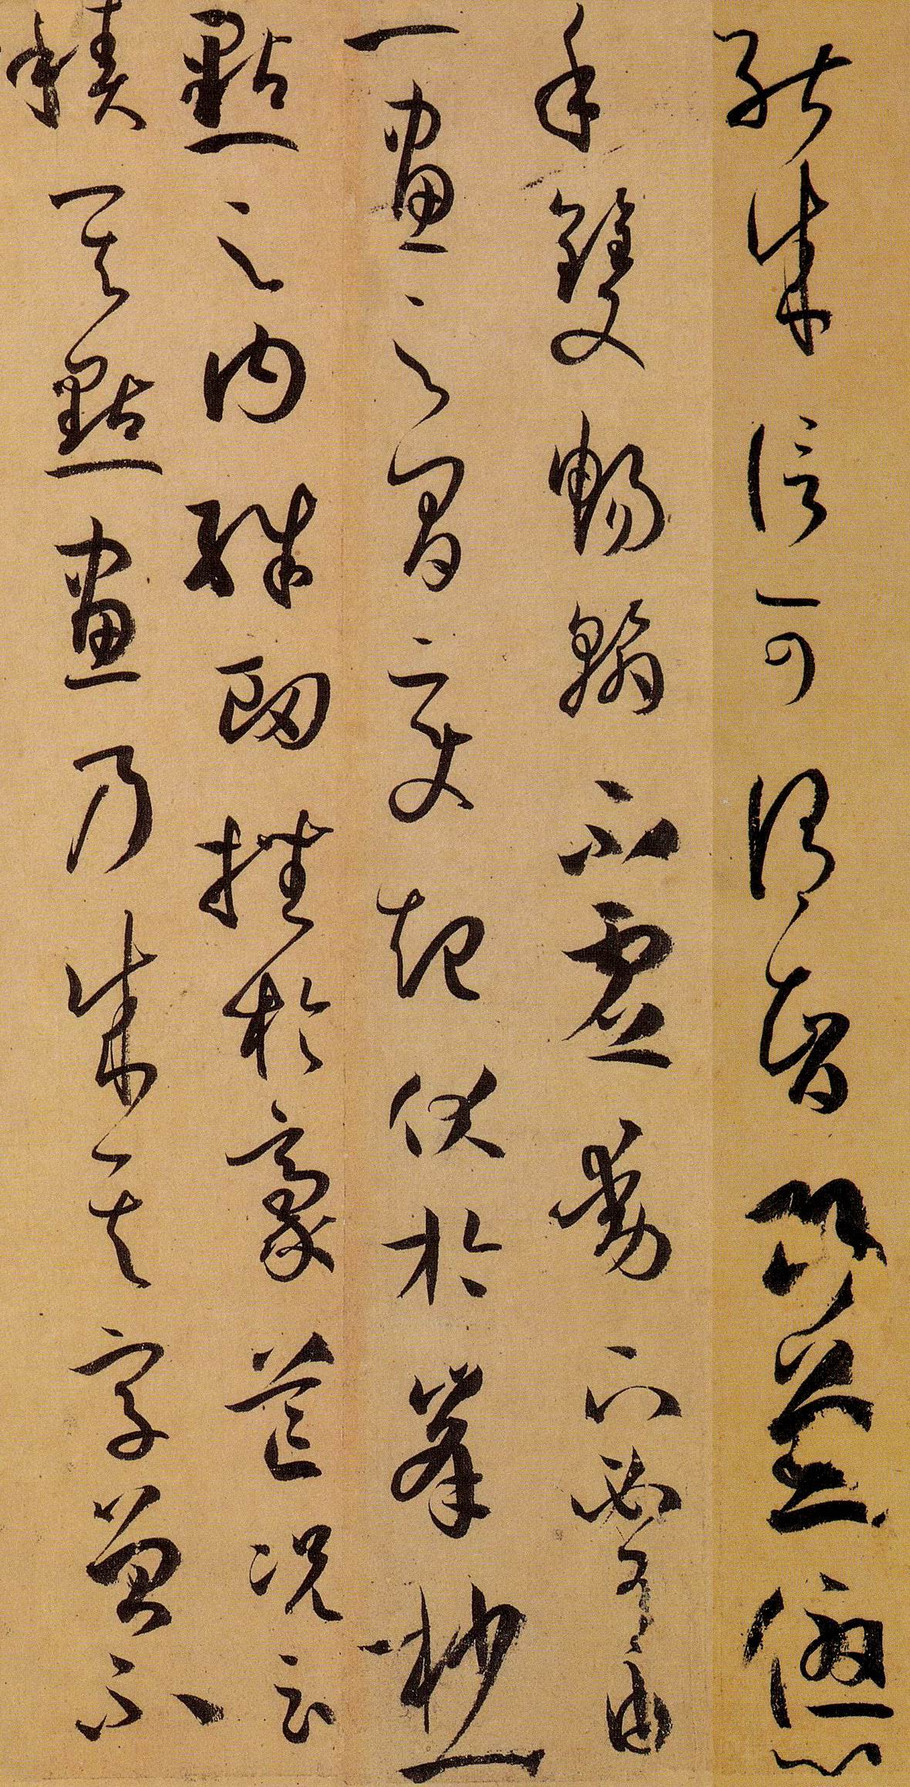 能成信可謂智巧兼優心
手雙暢翰不虛動下必有由
一畫之間變起伏於峯杪一
點之內殊衂挫於豪芒況云
積其點畫乃成其字曾不